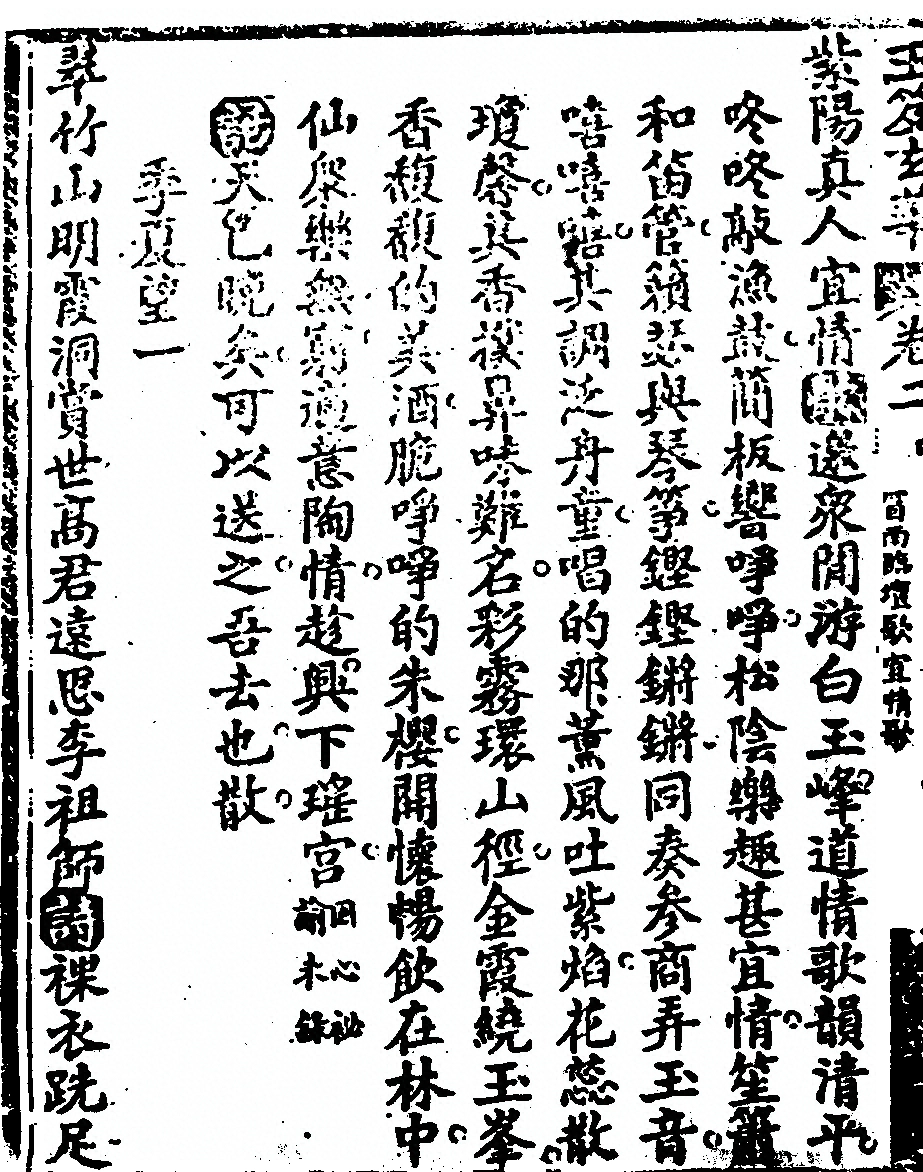 玉笈玄華 卷二 百南臨壇歌宜情歌
紫陽真人 宜情歌邀衆閒游白玉峰道情歌韻清平
咚咚敲漁鼓簡板響咿咿松陰樂趣甚宜情笙簫
和笛管籟瑟與琴箏鏗鏗鏘鏘同奏參商弄玉音
嘻嘻嘻其調泛舟童唱的那薰風吐紫焰花蕊散
瓊馨其香撲鼻哞難名彩霧環山徑金霞繞玉峯
香馥馥的美酒脆崢崢的朱櫻開懷暢飲在林中
仙衆樂無窮適意陶情趁興下瑤宮 因心祕諭未錄
諭天色晚矣可以送之吾去也散
季夏望一
翠竹山明霞洞賞世高君遠思李祖師詩裸衣跣足